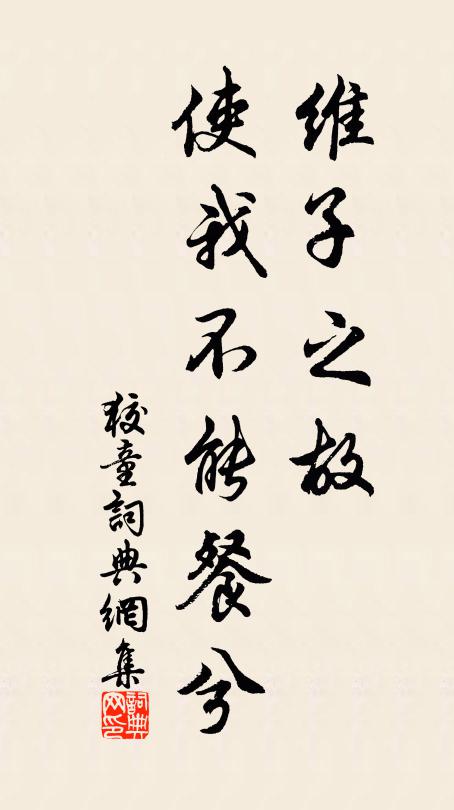 維子之故
使我不能餐兮
狡童詞典網集
詞典网印